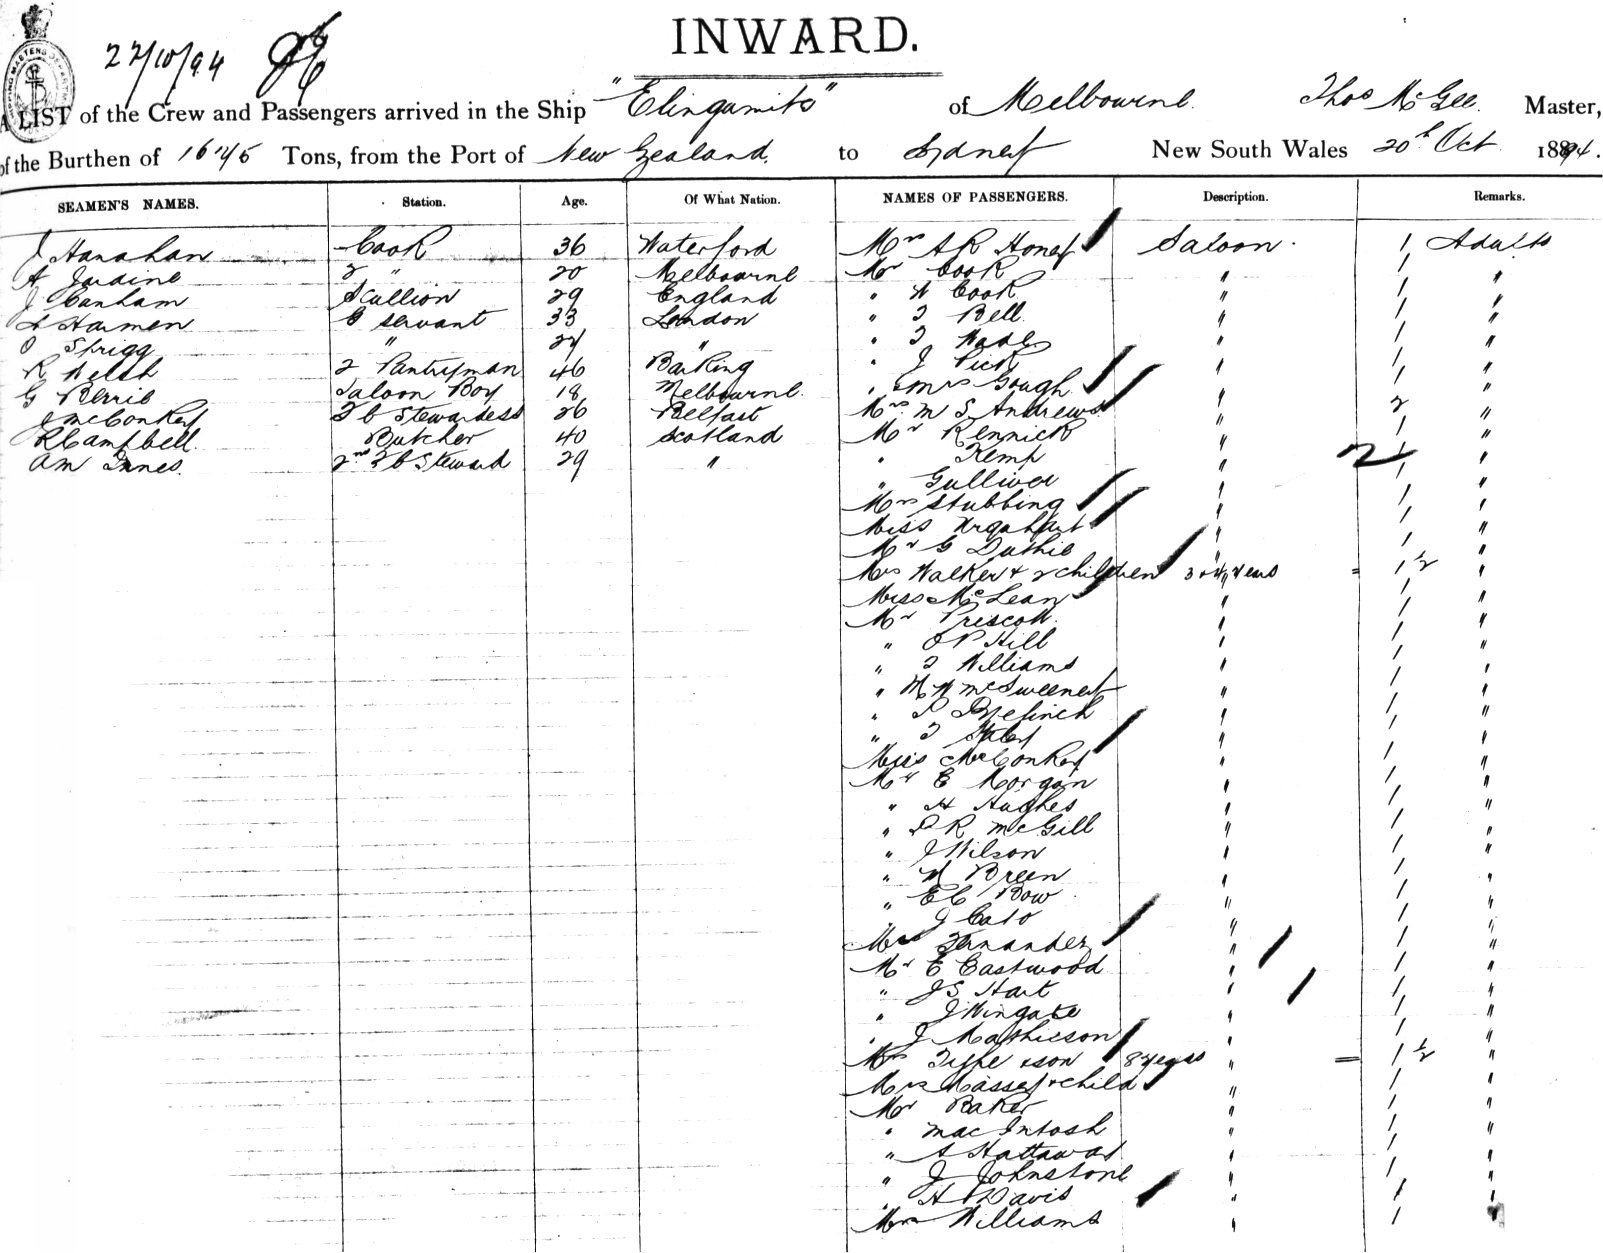 22/10/94
INWARD.
A LIST of the Crew and Passengers arrived in the Ship "Elingamite" of Melbourne. Thos McGee. Master,
of the Burthen of 1675 Tons, from the Port of New Zealand. to Sydney New South Wales 20th Oct 1894.
SEAMEN'S NAMES. Station. Age. Of What Nation. NAMES OF PASSENGERS. Description. Remarks.
J Hanahan Cook 36 Waterford
A Jardine 2 " 20 Melbourne
J Canham Scullion 29 England
H Harmen G Servant 33 London
Sprigg " "
R Welsh 2 Pantryman 46 Barking
G Berrie Saloon Boy 18 Melbourne.
J McConkey F C Stewardess 26 Belfast
R Campbell. Butcher 40 Scotland
A M Innes. 2nd F C Steward 29 "
Mrs A R Honey Saloon. 1 Adults
Mr Cook " 1 "
" W Cook " 1 "
" T Bell " 1 "
" T Wade " 1 "
" J Pick " 1 "
" Mrs Gough " 1 "
Mrs. M S Andrews " 2 "
Mr Rennick " 1 "
" Kemp " 1 "
" Gulliver " 1 "
Mrs Stubbing " 1 "
Miss Urquhart " 1 "
Mr G Duthie " 1 "
Mrs Walker + 2 children 3 + 4 years = 1 1/2 "
Miss McLean " 1 "
Mr Prescott " 1 "
" O P Hill " 1 "
" T Williams " 1 "
" W W McSweeney " 1 "
" " 1 "
" T " 1 "
Miss McConkey " 1 "
Mr E Morgan " 1 "
" H Hughes " 1 "
" D R McGill " 1 "
" J Wilson " 1 "
" W Breen " 1 "
" E C Bow " 1 "
" J Cato " 1 "
Mrs Fernandez " 1 "
Mr E Eastwood " 1 "
" J S Hart " 1 "
" J Wingate " 1 "
" J Mathieson " 1 "
Mrs + son 8 years " = 1 1/2 "
Mrs Massey + child " 1 "
Mr Baker " 1 "
" MacIntosh " 1 "
" A Hattaway " 1 "
" J Johnstone " 1 "
" H Davis " 1 "
Mrs Williams " 1